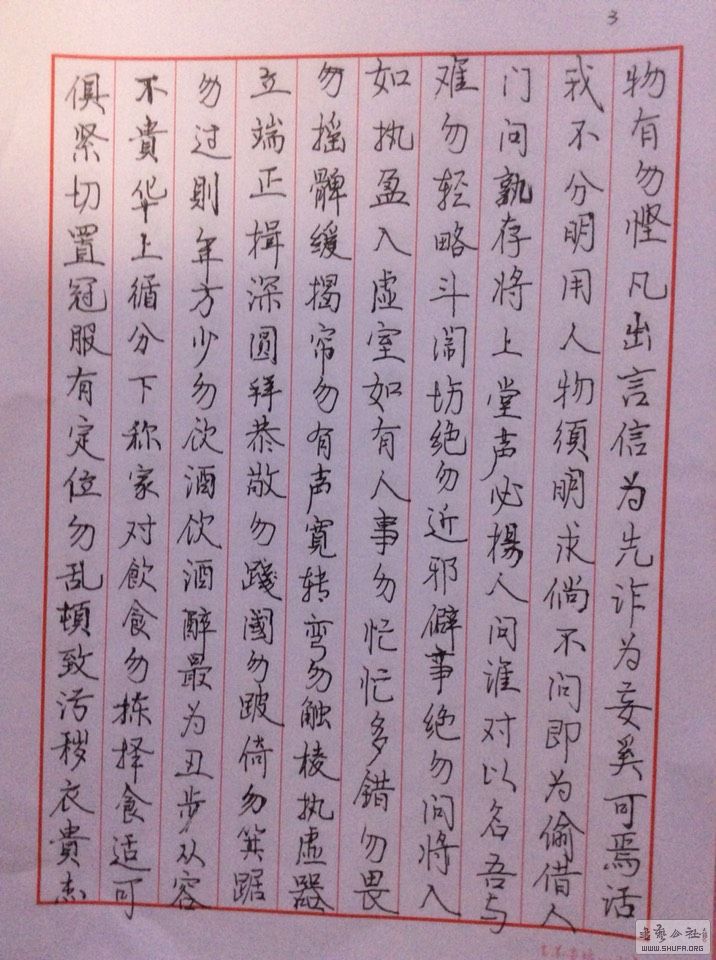 3
物有勿悭凡出言信为先诈为妄奚可焉话
我不分明用人物須明求倘不问即为偷借人
门问孰存将上堂声必揚人问谁对以名吾与
难勿轻略斗闹坊绝勿近邪僻事绝勿问将入
如执盈入虚室如有人事勿忙忙多错勿畏
勿摇髀缓揭帘勿有声宽转弯勿触棱执虚器
立端正揖深圆拜恭敬勿踐國勿跛倚勿箕踞
勿过則年方少勿饮酒饮酒醉最为丑步从容
不貴华上循分下称家对飲食勿拣择食适可
俱紧切置冠服有定位勿乱頓致污秽衣貴洁
书艺公社
WWW.SHUFA.ORG